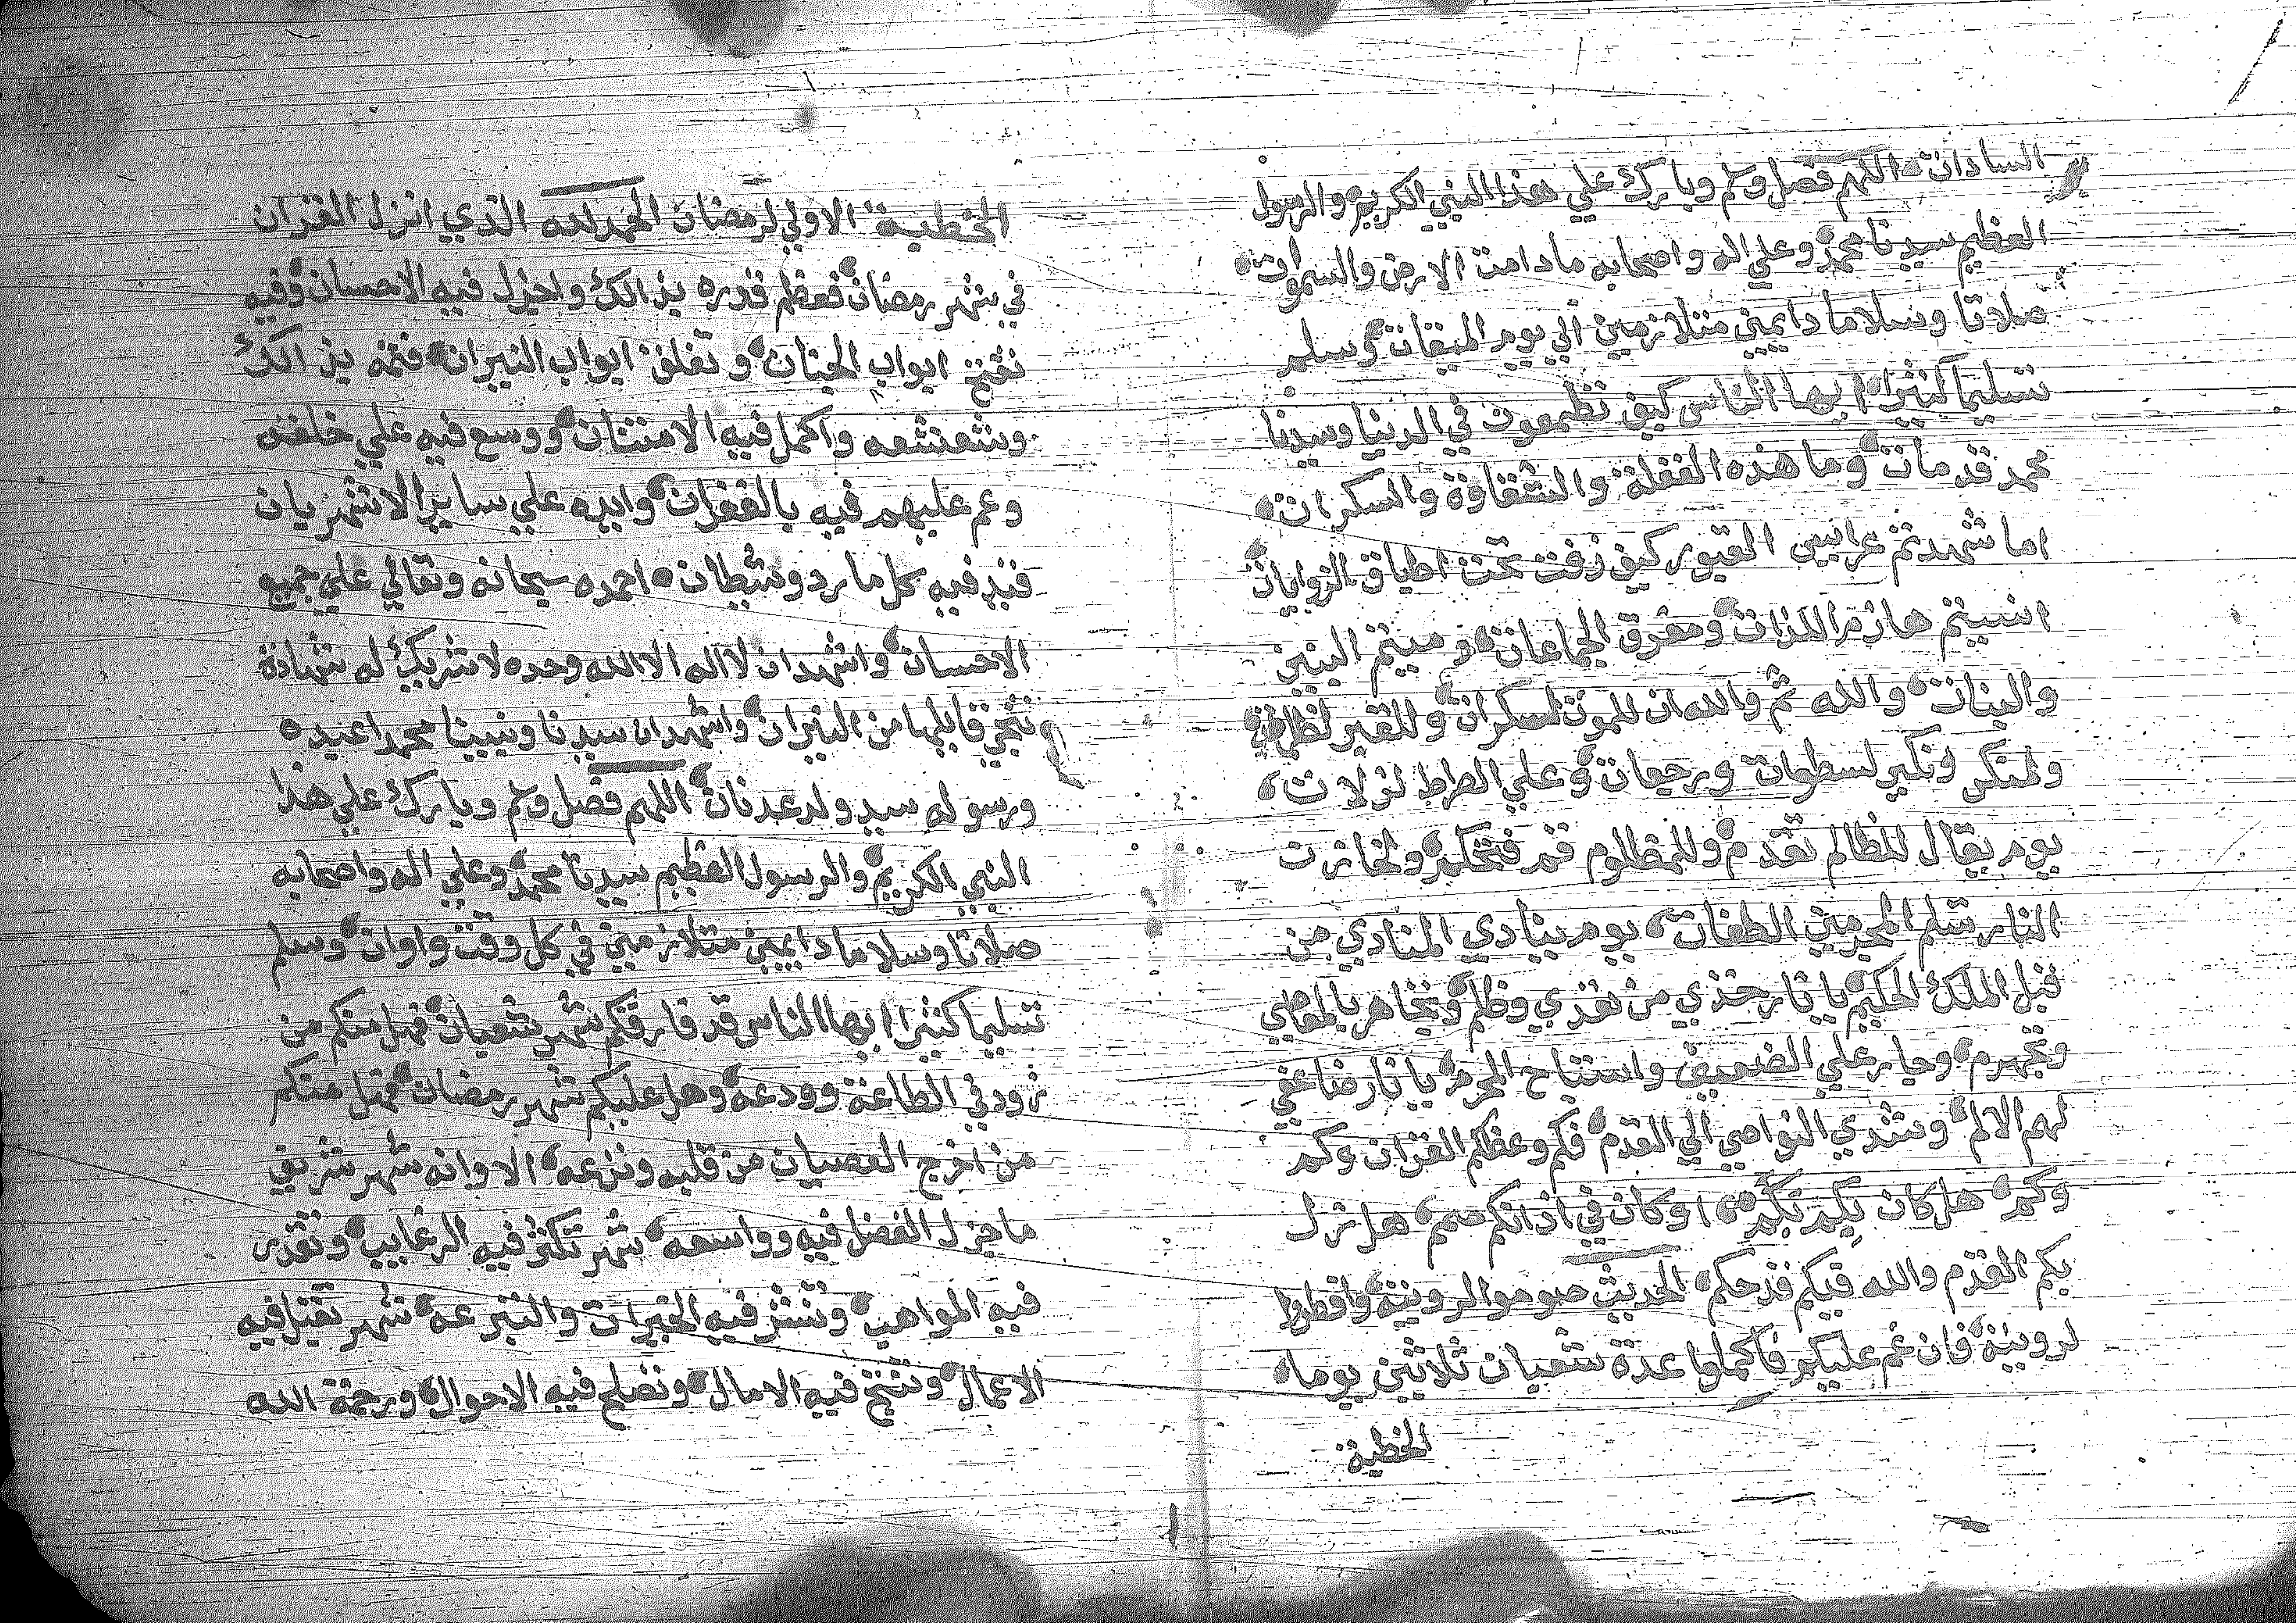 السادات اللهم فصل وسلم وبارك علي هذا النبي الكريم والرسول
العظيم سيدنا محمد وعلي اله واصحابه مادامت الارض والسموات
صلاتا وسلاما دايمين متلازمين الي يوم الميقات وسلم
تسليما كثيرا ايها الناس كيف تطمعون في الدنيا وسيدنا
محمد قد مات وما هذه الغفلة والشقاوة والسكرات
اما شهدتم عرايس القبور كيف زفت تحت اطباق
انسيتم هازم اللذات ومفرق الجماعات وميتم البنين
والبنات والله ثم والله ان للموت لسكرات وللقبر
ولمنكر ونكير لسطوات ورجعات وعلي الصراط لزلات
يوم يقال للظالم تقدم وللمظلوم قم فتحكم ولخازن
النار تسلم المجرمين الطغات يوم ينادي المنادي من
قبل الملك الحكيم يا نار خذي من تعدي وظلم وتجاهر بالمعاصي
وتجهرم وجار علي الضعيف واستباح المحرم يا نار ضاعفي
لهم الالم وشدي النواصي الي القدم فكم وعظكم القران وكم
وكم هل كان بكم بكم او كان في اذانكم صمم هل تزل
بكم القدم والله فيكم قد حكم الحديث صوموا لرويته وافطروا
لرويته فان غم عليكم فاكملوا عدة شعبان ثلاثين يوما
الخطبة
الخطبة الاولي لرمضان الحمد لله الذي انزل القران
في شهر رمضان فعظم قدره بذالك واجزل فيه الاحسان وفيه
تفتح ابواب الجنات وتغلق ابواب النيران فتمه بذالك
وشعشعه واكمل فيه الامتنان ووسع فيه علي خلقه
وعم عليهم فيه بالغفران وايده علي ساير الاشهر بان
قيد فيه كل مارد وشيطان احمده سبحانه وتعالي علي جميع
الاحسان واشهد ان لا اله الا الله وحده لا شريك له شهادة
تنجي قايلها من النيران واشهد ان سيدنا ونبينا محمدا عبده
ورسوله سيد ولد عدنان اللهم فصل وسلم وبارك علي هذا
النبي الكريم والرسول العظيم سيدنا محمد وعلي اله واصحابه
صلاتا وسلاما دايمين متلازمين في كل وقت واوان وسلم
تسليما كثيرا ايها الناس قد فارقكم شهر شعبان فهل منكم من
زود في الطاعة وودعه وهل عليكم شهر رمضان فهل منكم
من اخرج العصيان من قلبه ونزعه الا وانه شهر شريف
ما جزل الفضل فيه وواسعه شهر تكثر فيه الرغايب وتغدر
فيه المواهب وتنشر فيه الخيرات والتبرعه شهر تقبل فيه
الاعمال وتنجح فيه الامال وتصلح فيه الاحوال ورحمة الله